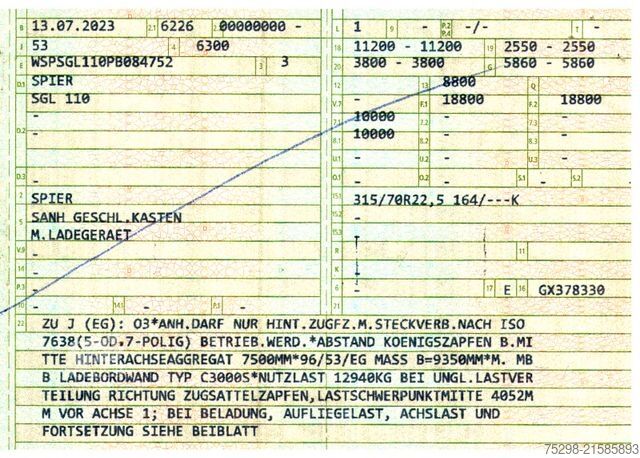 B 13.07.2023 2.1 6226 2.2 00000000 -
J 53 4 6300
E WSPSGL110PB084752 3 3
D.1 SPIER
SGL 110
D.2 -
-
-
D.3 -
2 SPIER
5 SANH GESCHL.KASTEN
M.LADEGERAET
V.9 -
14 -
P.3 -
10 - 14.1 - P.1 -
L 1 9 - P.2 P.4 -/- T -
18 11200 - 11200 19 2550 - 2550
20 3800 - 3800 G 5860 - 5860
12 - 13 8800 Q -
V.7 - F.1 18800 F.2 18800
7.1 10000 7.2 - 7.3 -
8.1 10000 8.2 - 8.3 -
U.1 - U.2 - U.3 -
O.1 - O.2 - S.1 - S.2
15.1 315/70R22,5 164/---K
15.2 -
15.3 -
R - 11 -
K -
6 - 17 E 16 GX378330
21
22 ZU J (EG): O3*ANH.DARF NUR HINT.ZUGFZ.M.STECKVERB.NACH ISO
7638(5-OD.7-POLIG) BETRIEB.WERD.*ABSTAND KOENIGSZAPFEN B.MI
TTE HINTERACHSEAGGREGAT 7500MM*96/53/EG MASS B=9350MM*M. MB
B LADEBORDWAND TYP C3000S*NUTZLAST 12940KG BEI UNGL.LASTVER
TEILUNG RICHTUNG ZUGSATTELZAPFEN,LASTSCHWERPUNKTMITTE 4052M
M VOR ACHSE 1; BEI BELADUNG, AUFLIEGELAST, ACHSLAST UND
FORTSETZUNG SIEHE BEIBLATT
75298-21585893